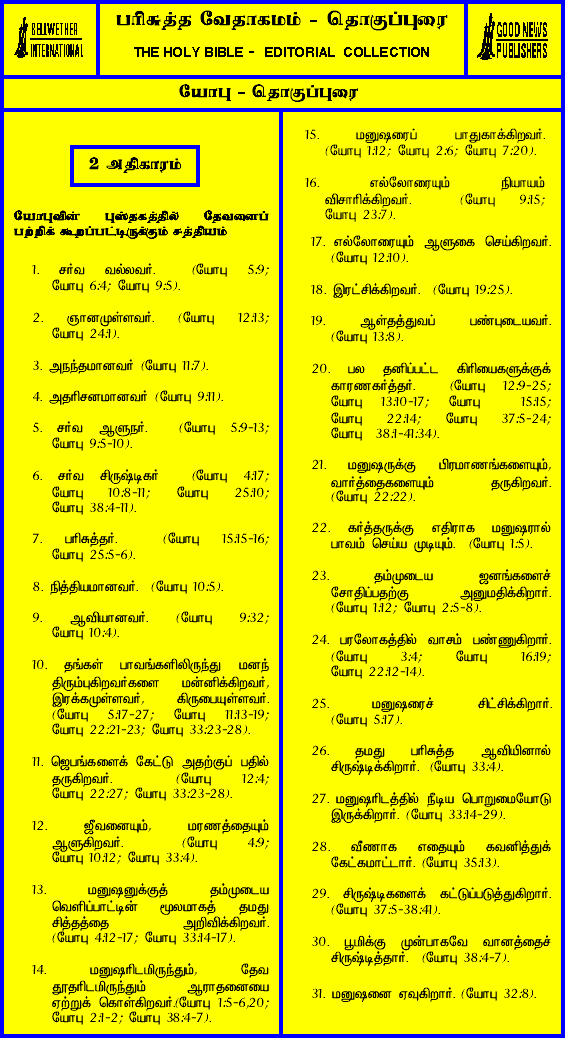 BELLWETHER
INTERNATIONAL
பரிசுத்த வேதாகமம் - தொகுப்புரை
THE HOLY BIBLE - EDITORIAL COLLECTION
GOOD NEWS
PUBLISHERS
யோபு - தொகுப்புரை
2 அதிகாரம்
யோபுவின் புஸ்தகத்தில் தேவனைப்
பற்றிக் கூறப்பட்டிருக்கும் சத்தியம்
1. சர்வ வல்லவர். (யோபு 5:9;
யோபு 6:4; யோபு 9:5).
2. ஞானமுள்ளவர். (யோபு 12:13;
யோபு 24:1).
3. அநந்தமானவர் (யோபு 11:7).
4. அதரிசனமானவர் (யோபு 9:11).
5. சர்வ ஆளுநர். (யோபு 5:9-13;
யோபு 9:5-10).
6. சர்வ சிருஷ்டிகர் (யோபு 4:17;
யோபு 10:8-11; யோபு 25:10;
யோபு 38:4-11).
7. பரிசுத்தர். (யோபு 15:15-16;
யோபு 25:5-6).
8. நித்தியமானவர். (யோபு 10:5).
9. ஆவியானவர். (யோபு 9:32;
யோபு 10:4).
10. தங்கள் பாவங்களிலிருந்து மனந்
திரும்புகிறவர்களை மன்னிக்கிறவர்,
இரக்கமுள்ளவர், கிருபையுள்ளவர்.
(யோபு 5:17-27; யோபு 11:13-19;
யோபு 22:21-23; யோபு 33:23-28).
11. ஜெபங்களைக் கேட்டு அதற்குப் பதில்
தருகிறவர். (யோபு 12:4;
யோபு 22:27; யோபு 33:23-28).
12. ஜீவனையும், மரணத்தையும்
ஆளுகிறவர். (யோபு 4:9;
யோபு 10:12; யோபு 33:4).
13. மனுஷனுக்குத் தம்முடைய
வெளிப்பாட்டின் மூலமாகத் தமது
சித்தத்தை அறிவிக்கிறவர்.
(யோபு 4:12-17; யோபு 33:14-17).
14. மனுஷரிடமிருந்தும், தேவ
தூதரிடமிருந்தும் ஆராதனையை
ஏற்றுக் கொள்கிறவர்.(யோபு 1:5-6,20;
யோபு 2:1-2; யோபு 38:4-7).
15. மனுஷரைப் பாதுகாக்கிறவர்.
(யோபு 1:12; யோபு 2:6; யோபு 7:20).
16. எல்லோரையும் நியாயம்
விசாரிக்கிறவர். (யோபு 9:15;
யோபு 23:7).
17. எல்லோரையும் ஆளுகை செய்கிறவர்.
(யோபு 12:10).
18. இரட்சிக்கிறவர். (யோபு 19:25).
19. ஆள்தத்துவப் பண்புடையவர்.
(யோபு 13:8).
20. பல தனிப்பட்ட கிரியைகளுக்குக்
காரணகர்த்தர். (யோபு 12:9-25;
யோபு 13:10-17; யோபு 15:15;
யோபு 22:14; யோபு 37:5-24;
யோபு 38:1-41:34).
21. மனுஷருக்கு பிரமாணங்களையும்,
வார்த்தைகளையும் தருகிறவர்.
(யோபு 22:22).
22. கர்த்தருக்கு எதிராக மனுஷரால்
பாவம் செய்ய முடியும். (யோபு 1:5).
23. தம்முடைய ஜனங்களைச்
சோதிப்பதற்கு அனுமதிக்கிறார்.
(யோபு 1:12; யோபு 2:5-8).
24. பரலோகத்தில் வாசம் பண்ணுகிறார்.
(யோபு 3:4; யோபு 16:19;
யோபு 22:12-14).
25. மனுஷரைச் சிட்சிக்கிறார்.
(யோபு 5:17).
26. தமது பரிசுத்த ஆவியினால்
சிருஷ்டிக்கிறார். (யோபு 33:4).
27. மனுஷரிடத்தில் நீடிய பொறுமையோடு
இருக்கிறார். (யோபு 33:14-29).
28. வீணாக எதையும் கவனித்துக்
கேட்கமாட்டார். (யோபு 35:13).
29. சிருஷ்டிகளைக் கட்டுப்படுத்துகிறார்.
(யோபு 37:5-38:41).
30. பூமிக்கு முன்பாகவே வானத்தைச்
சிருஷ்டித்தார். (யோபு 38:4-7).
31. மனுஷனை ஏவுகிறார். (யோபு 32:8).